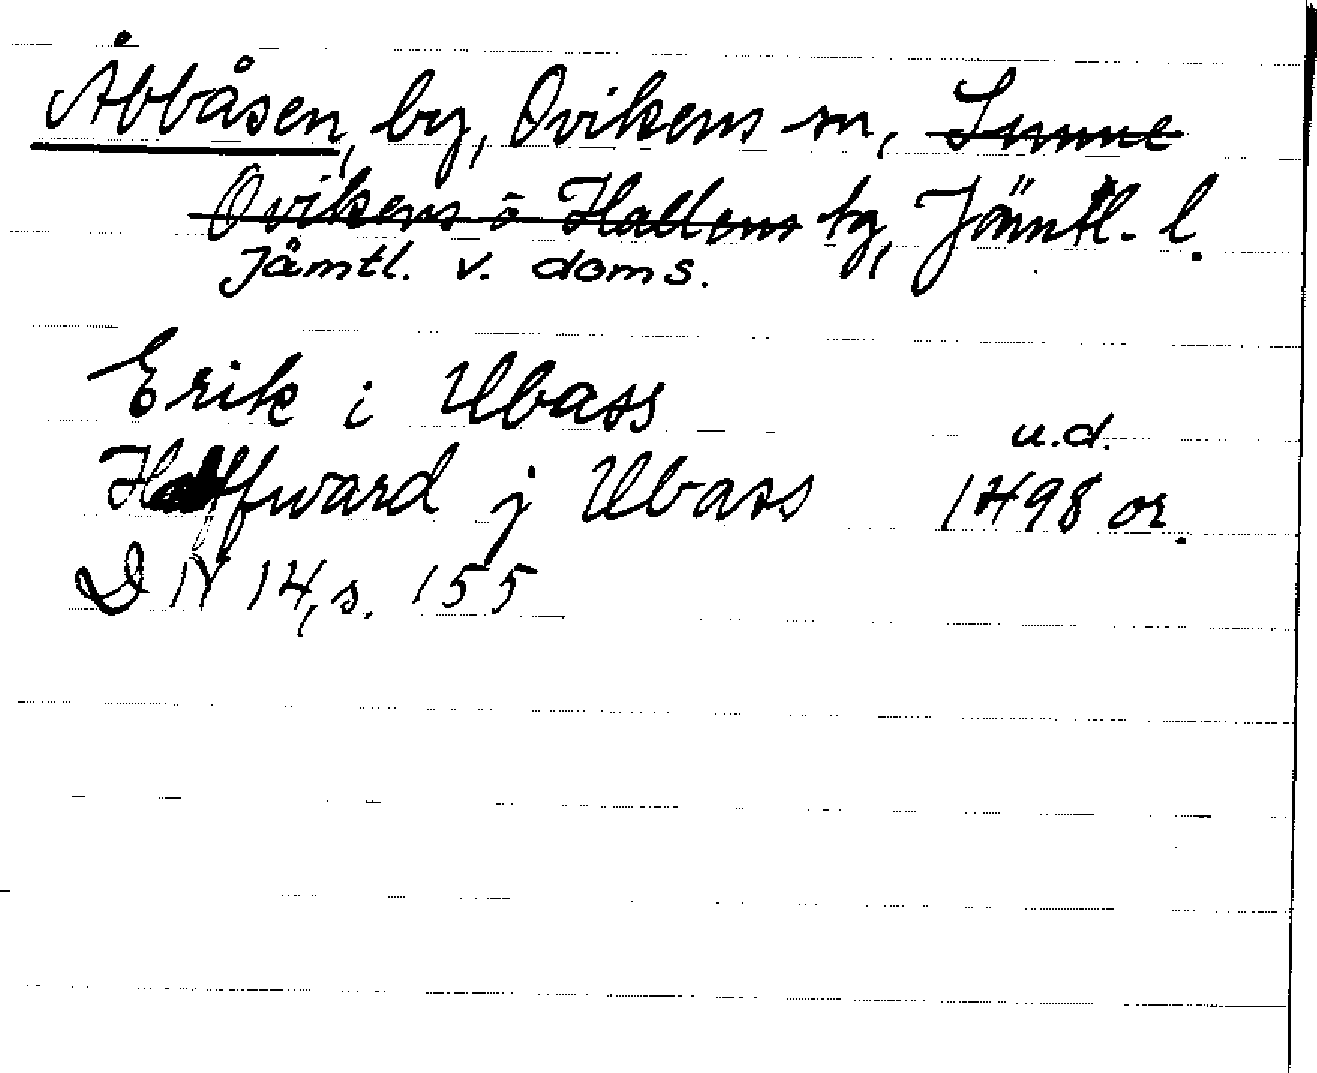 Åbbåsen, by, Ovikens sn, Sunne
Ovikens o Hallens tg, Jämtl. l.
Jämtl. v. doms.
Erik i Ubass
u.d.
Haffward j Ubass 1498 or.
DN 14, s. 155